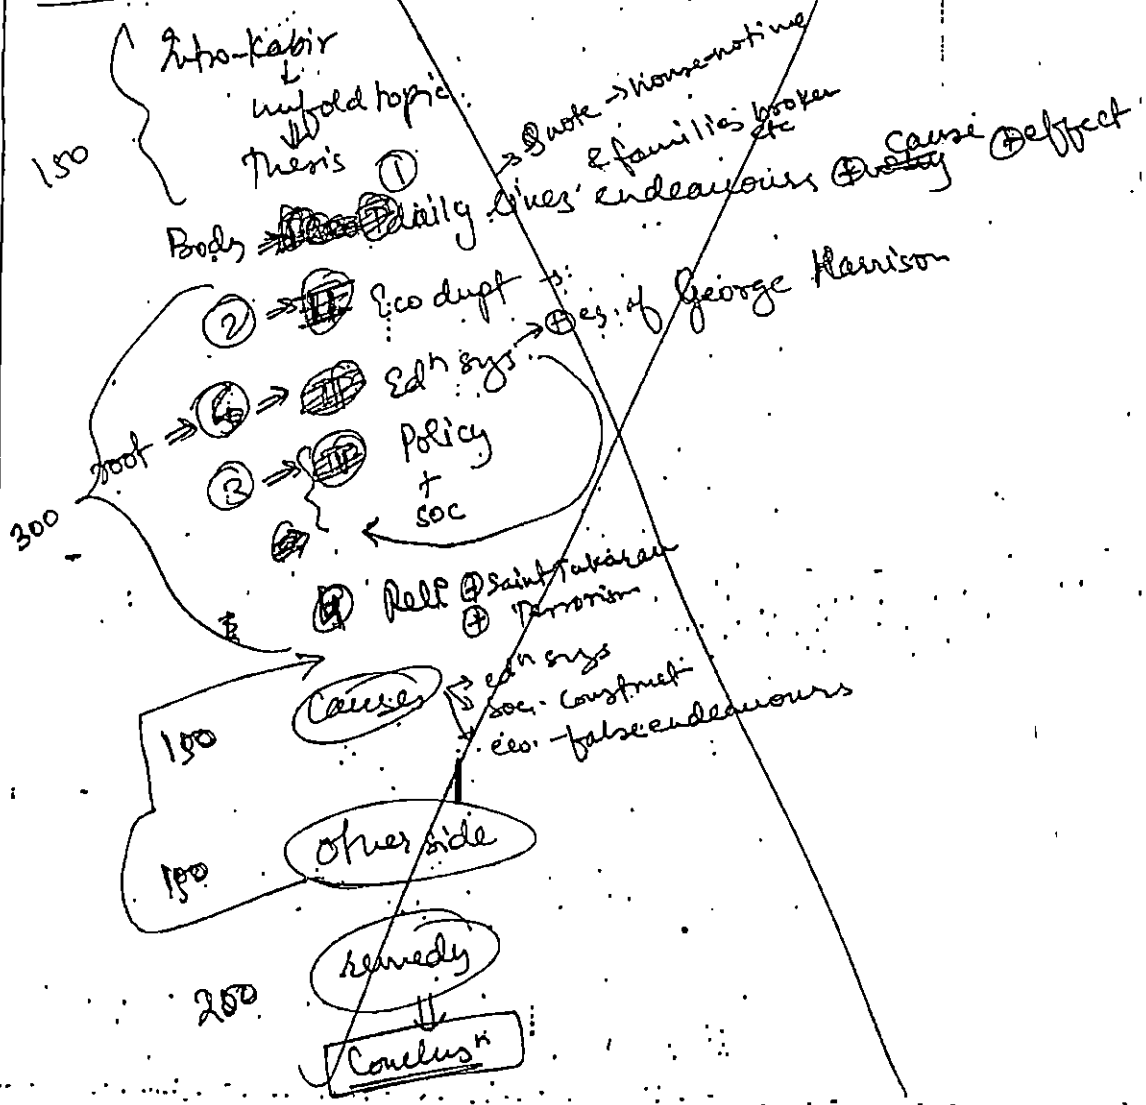 Intro-Kabir
↓
unfold topic
⇓
Thesis
150
→ Quote → house-not ime
& families broken
etc
①
Body ⇒ daily lives' endeavours ⊕ cause ⊕ effect
② ⇒ Eco dupt →
⊕ eg. of George Harrison
⇒ Edⁿ sys →
root ⇒
③ ⇒ Policy
+
soc
300
④ Reli ⊕ Saint Tukaram
⊕ Terrorism
Causes → edⁿ sys
soc. construct
eco. - false endeavours
150
other side
150
remedy
200
⇓
Conclusⁿ